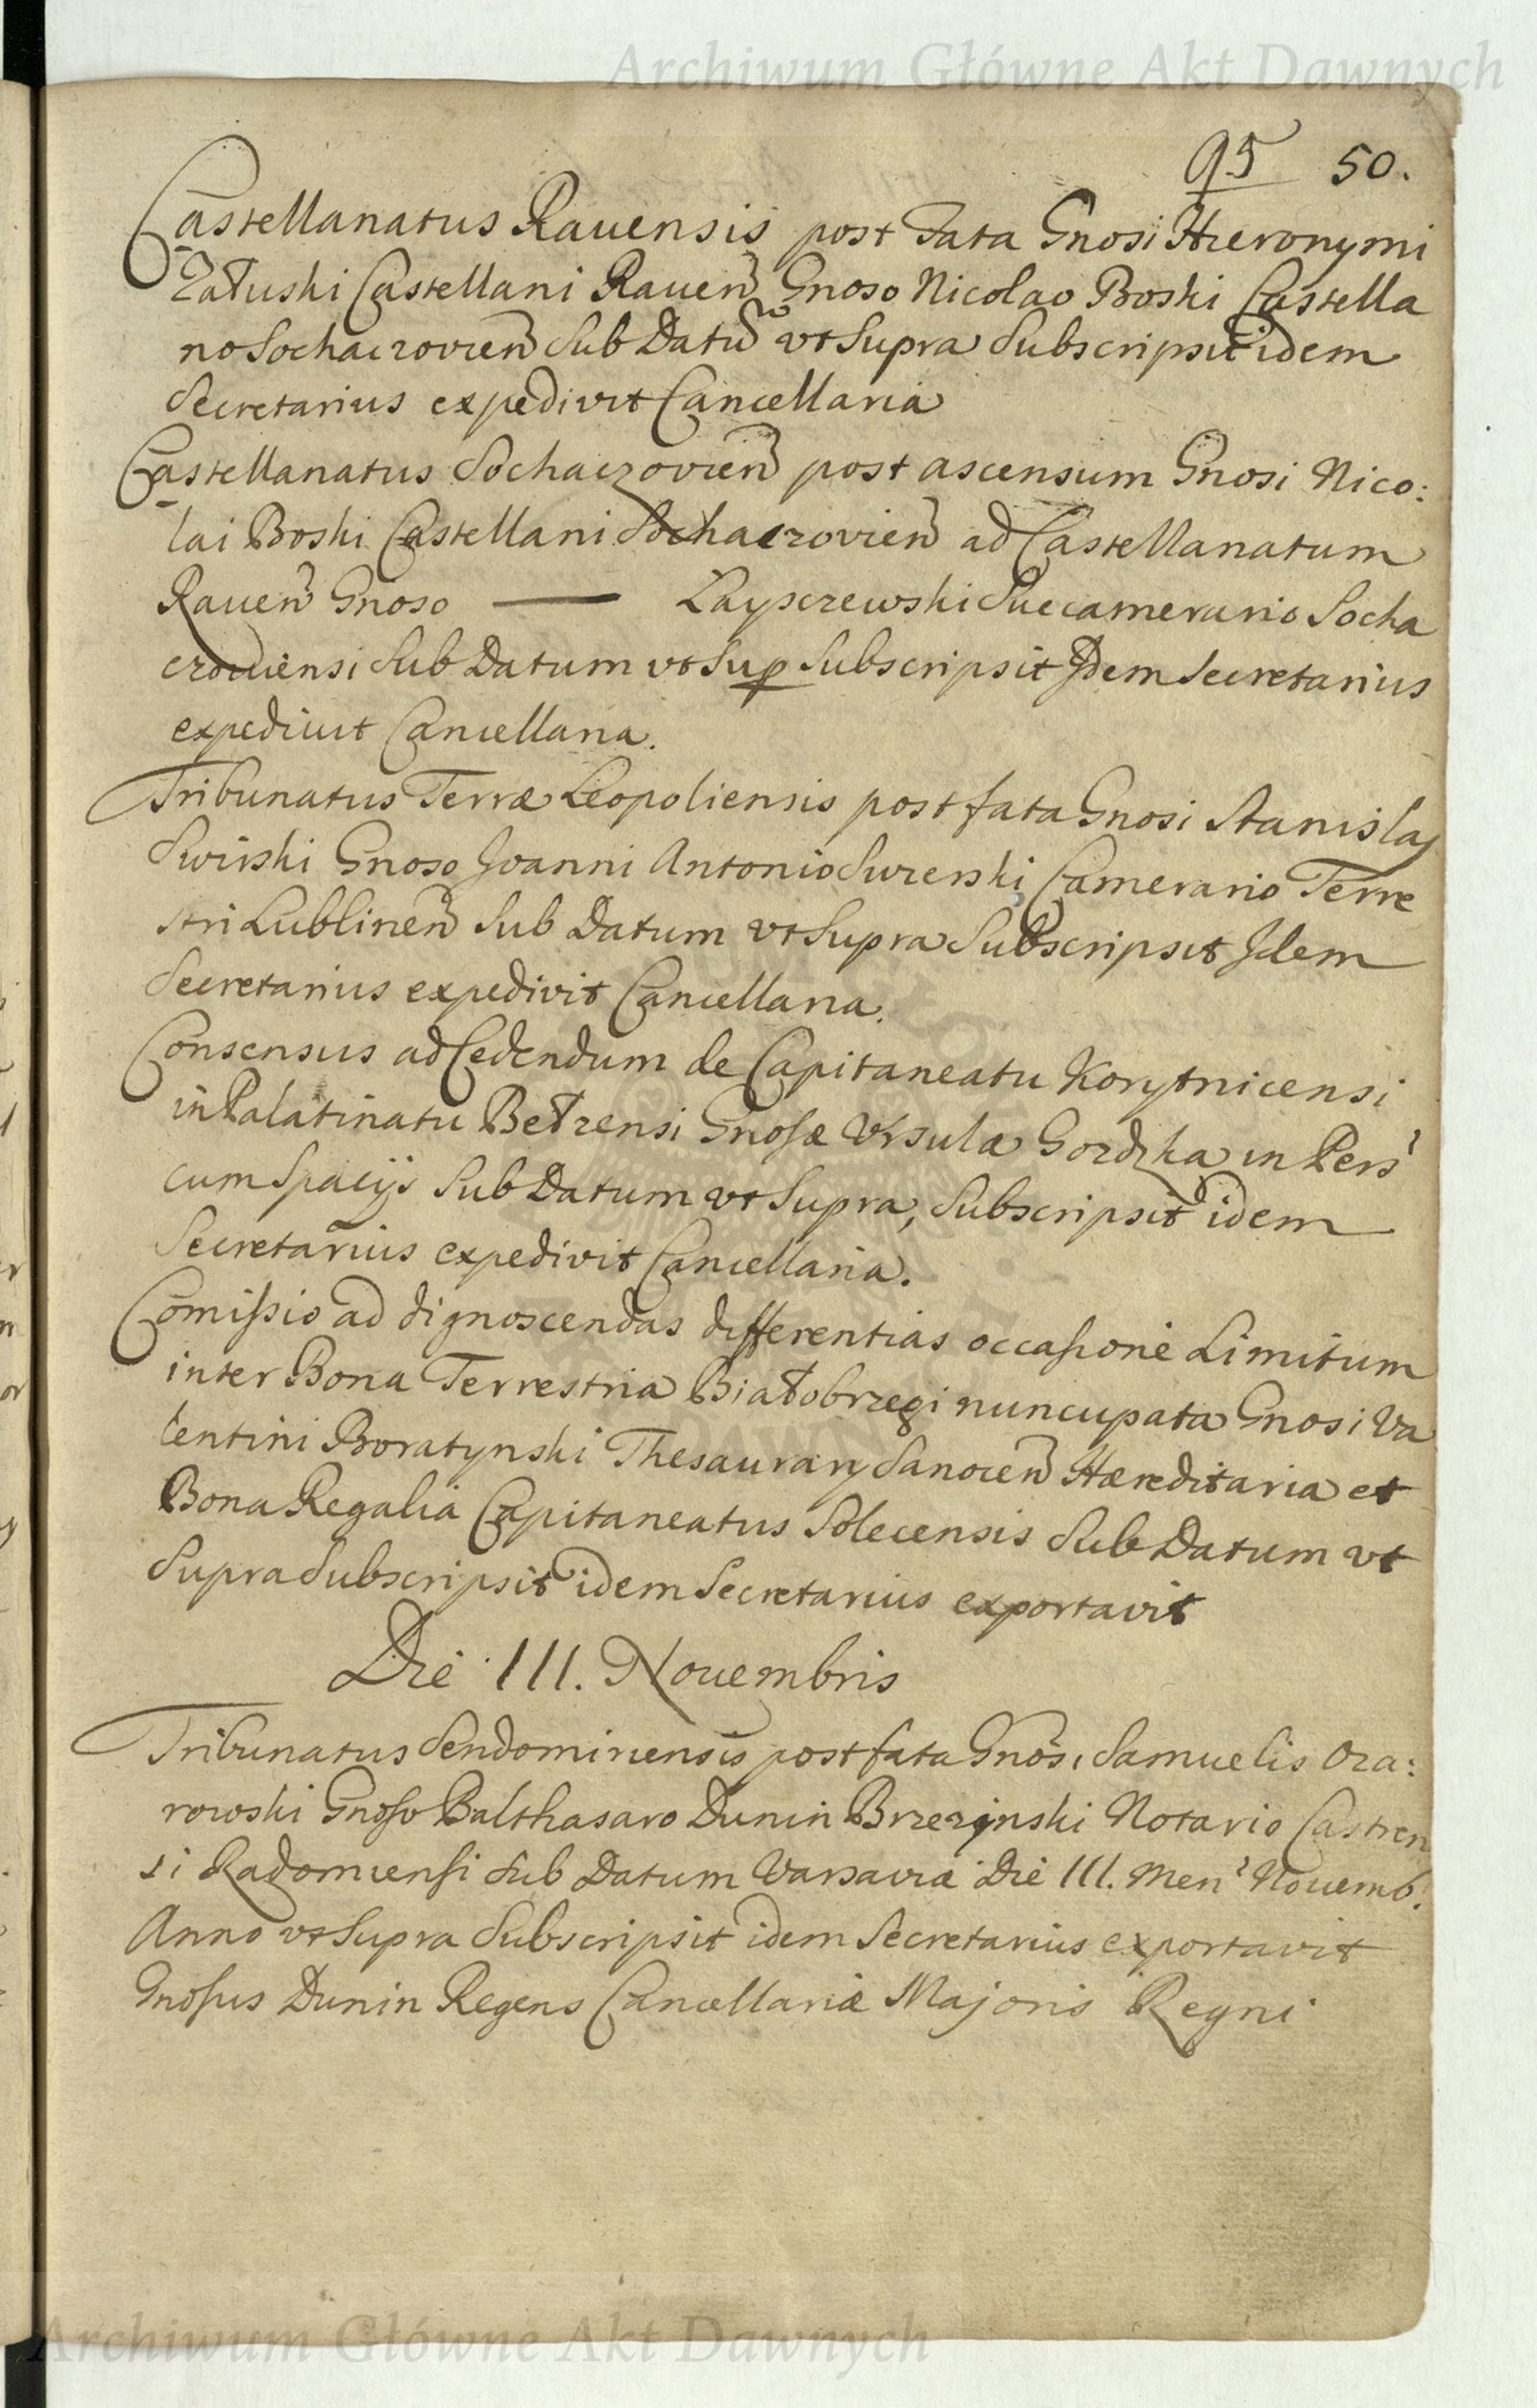 Archiwum Główne Akt Dawnych
95 50.
Castellanatus Rauensis post Fata Gnosi Hieronymi
Załuski Castellani Rauen Gnoso Nicolao Boski Castella
no Sochaczovien Sub Datu vt Supra Subscripsit idem
Secretarius expedivit Cancellaria
Castellanatus Sochaczovien post ascensum Gnosi Nico:
lai Boski Castellani Sochaczovien ad Castellanatum
Rauen Gnoso — Łayszewski Succamerario Socha
czouiensi Sub Datum vt Sup Subscripsit Idem Secretarius
expediuit Cancellaria.
Tribunatus Terræ Leopoliensis post fata Gnosi Stanislaj
Swirski Gnoso Joanni Antonio Swirski Camerario Terre
stri Lublinen Sub Datum vt Supra Subscripsit Idem
Secretarius expedivit Cancellaria.
Consensus ad Cedendum de Capitaneatu Korytnicensi
in Palatinatu Bełzensi Gnosæ Vrsulæ in Pers
cum Spacijs Sub Datum vt Supra, Subscripsit idem
Secretarius expedivit Cancellaria.
Comissio ad dignoscendas differentias occasione Limitum
inter Bona Terrestria Białobrzegi nuncupata Gnosi Va
lentini Boratynski Thesaurarij Sanocen Hæreditaria et
Bona Regalia Capitaneatus Solecensis Sub Datum vt
Supra Subscripsit idem Secretarius exportavit
Die III. Nouembris
Tribunatus Sendomiriensis post fata Gnosi Samuelis Oza:
rowski Gnoso Balthasaro Dunin Brzezinski Notario Castren
si Radomiensi Sub Datum Varsaviæ Die III. Men Nouemb.
Anno vt Supra Subscripsit idem Secretarius exportavit
Gnosus Dunin Regens Cancellariæ Majoris Regni
Archiwum Główne Akt Dawnych